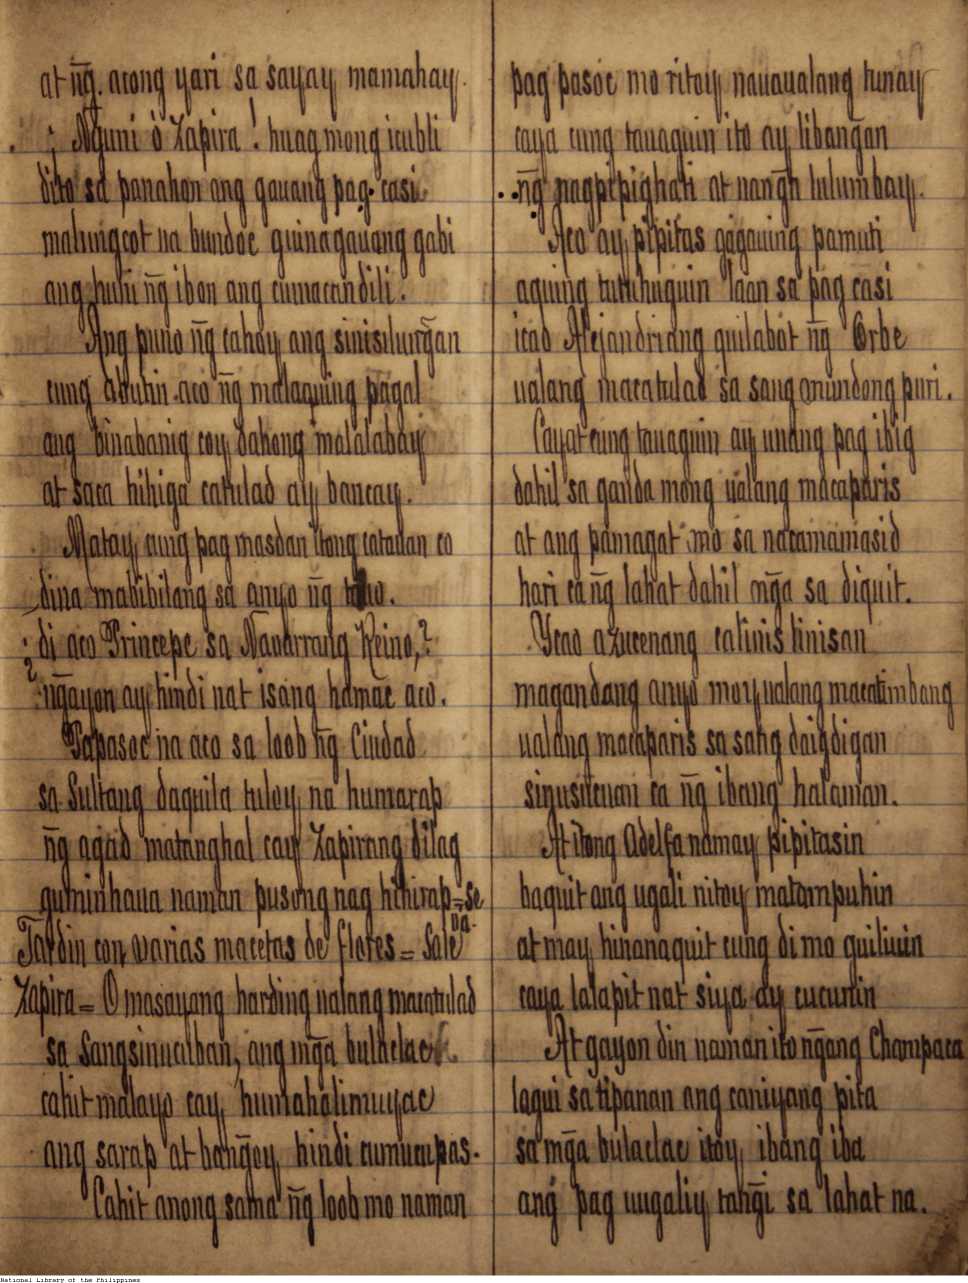 at ng̃. acong yari sa sayay mamahay.
¡ Nguni ò Zapira! huag mong icubli
dito sa panahon ang gauang pag-casi.
malungcot na bundoc guinagauang gabi
ang huni ng̃ ibon ang cumacandili.
Ang puno ng̃ cahoy ang sinisilung̃an
cung abutin aco ng̃ malaquing págal
ang binabanig coy dahong malalabay
at saca hihiga catulad ay bancay.
Matay cung pag masdan itong catauan co
dina mabibilang sa anyo ng̃
¿ di aco Principe sa Navarrang Reino,?
ng̃ayon ay hindi nat isang hamac aco.
Papasoc na aco sa loob ng̃ Ciudad
sa Sultang daquila tuloy na humarap
ng̃ agad matanghal cay Zapirang dilag
guminhaua naman pusong nag hihirap=Se
Jardin con varias macetas de flores = Sale
da.
Zapira= O masayang harding ualang macatulad
sa Sangsinucuban, ang mg̃a bulaclac
cahit malayo cay humahalimuyac
ang sarap at bang̃oy hindi cumucupas.
Cahit anong sama ng̃ loob mo naman
pag pasoc mo ritoy nauaualang tunay
caya cung tauaguin ito ay libang̃an
ng̃ nagpipighati at nang̃ lulumbay.
Aco ay pipitas gagauing pamuti
aquing tutuhuguin laan sa pag casi
icao Alejandriang quilabót ng̃ Orbe
ualang macatulad sa sang mundong puri.
Cayat cung tauaguin ay unang pag ibig
dahil sa ganda mong ualang macaparis
at ang pamagat mo sa nacamamasid
hari ca ng̃ lahat dahil mg̃a sa diquit.
Ycao azucenang calinis linisan
magandang anyo moy ualang macatimbang
ualang macaparis sa sang daigdigan
sinusucuan ca ng̃ ibang halaman.
At itong Adelfa namay pipitasin
baquit ang ugali nitoy matampuhin
at may hinanaquit cung di mo quiliuin
caya lalapit nat siya ay cucunin
At gayon din naman ito ng̃ang Champaca
lagui sa tipanan ang caniyang pita
sa mg̃a bulaclac itoy ibang iba
ang pag uugaliy tang̃i sa lahat na.
National Library of the Philippines